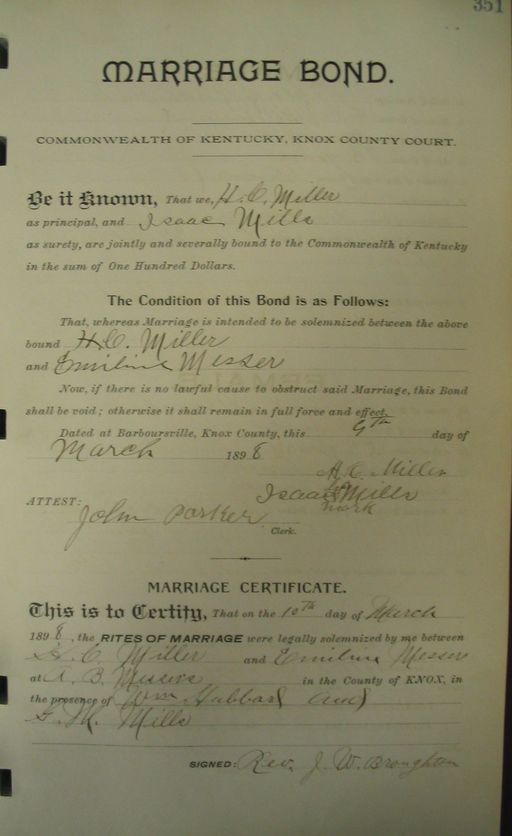 351
MARRIAGE BOND.
COMMONWEALTH OF KENTUCKY, KNOX COUNTY COURT.
Be it Known, That we, H. C. Miller
as principal, and Isaac Mills
as surety, are jointly and severally bound to the Commonwealth of Kentucky
in the sum of One Hundred Dollars.
The Condition of this Bond is as Follows:
That, whereas Marriage is intended to be solemnized between the above
bound H. C. Miller
and Emiline Messer
Now, if there is no lawful cause to obstruct said Marriage, this Bond
shall be void; otherwise it shall remain in full force and effect.
Dated at Barboursville, Knox County, this 9th day of
March 1898
H. C. Miller
Isaac Mills
mark
ATTEST:
John Parker
Clerk.
MARRIAGE CERTIFICATE.
This is to Certify, That on the 10th day of March
1898, the RITES OF MARRIAGE were legally solemnized by me between
H. C. Miller and Emiline Messer
at B. in the County of KNOX, in
the presence of Wm Hubbard and
Mills
SIGNED: Rev. J. W. Broughton